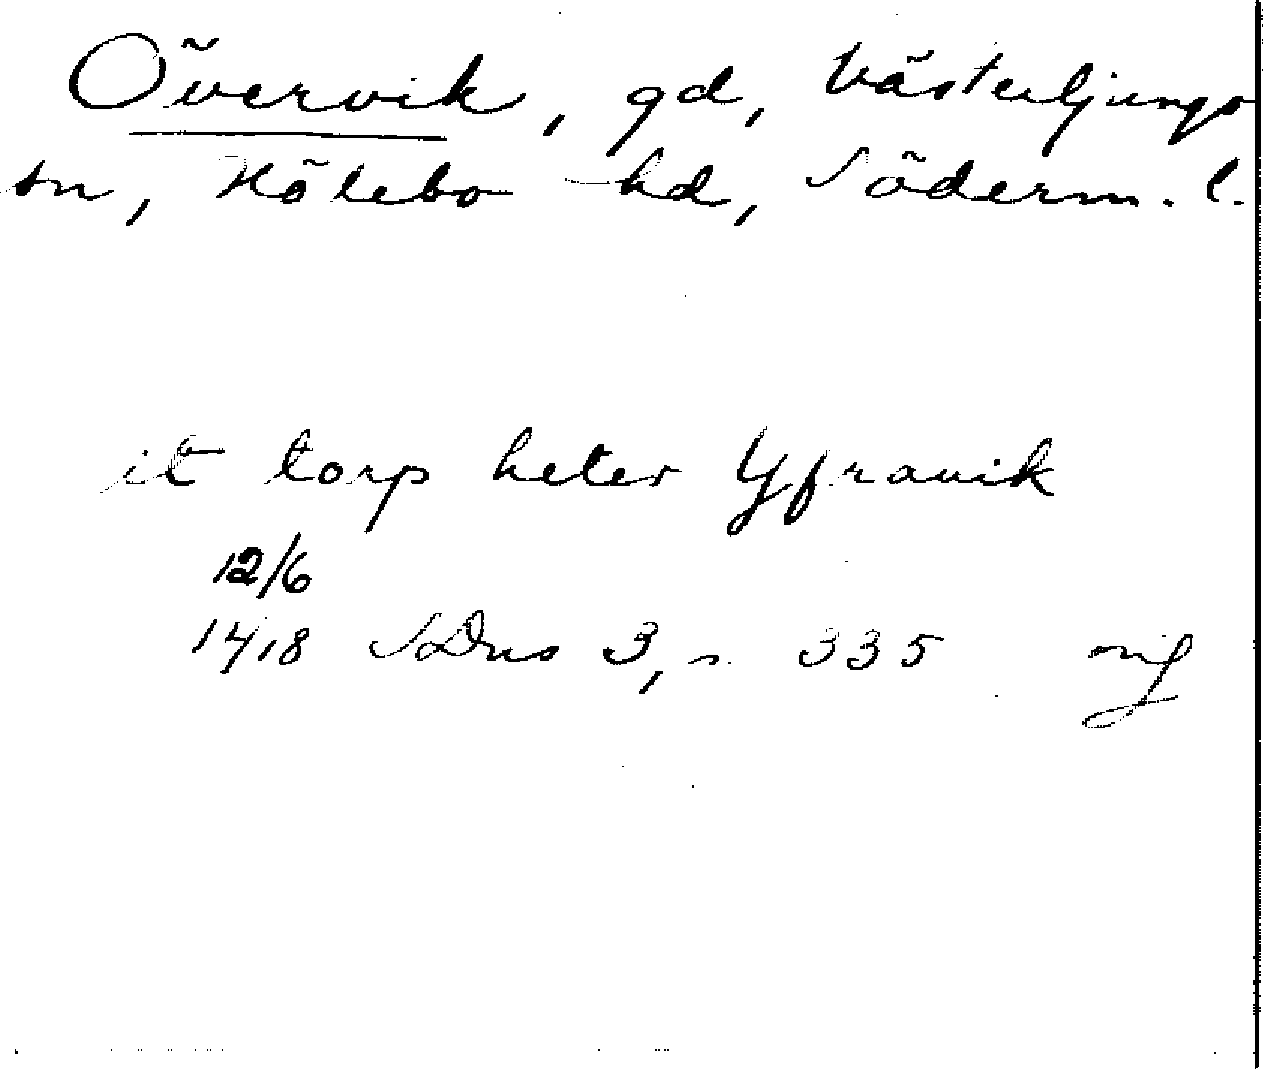 Övervik, gd, Västerljungs
sn, Hölebo hd, Söderm. l.
it torp heter Yfravik
12/6
1418 SDns 3, s. 335 orig